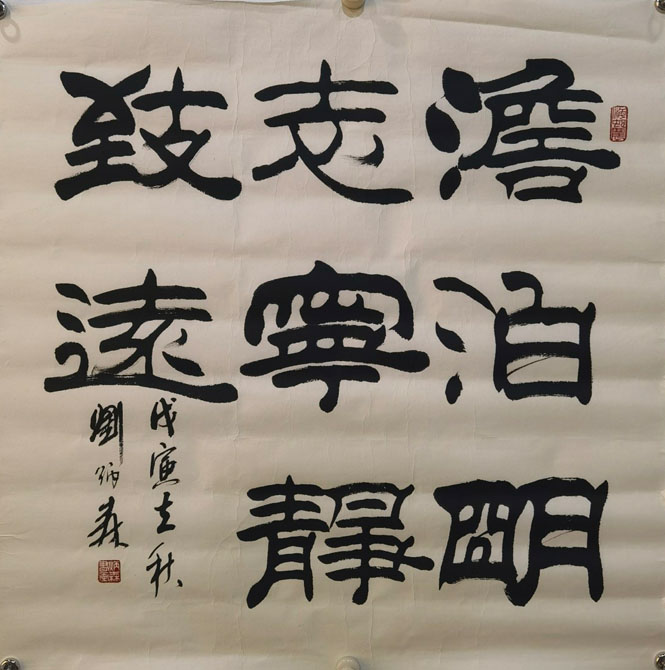 澹泊明
志寧静
致遠
戊寅立秋
劉炳森